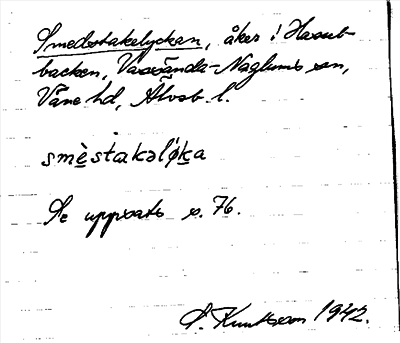 Smedstakelyckan, åker i Havret-
backen, Vassända-Naglums sn,
Väne hd, Älvsb. l.
smè̱stakəlǿ̱ka
Se uppsats s. 76.
1942.